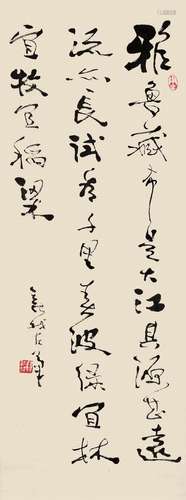 雅鲁藏布是大江其源甚远
流亦长试看千里春波绿宜林
宜牧宜稻粱